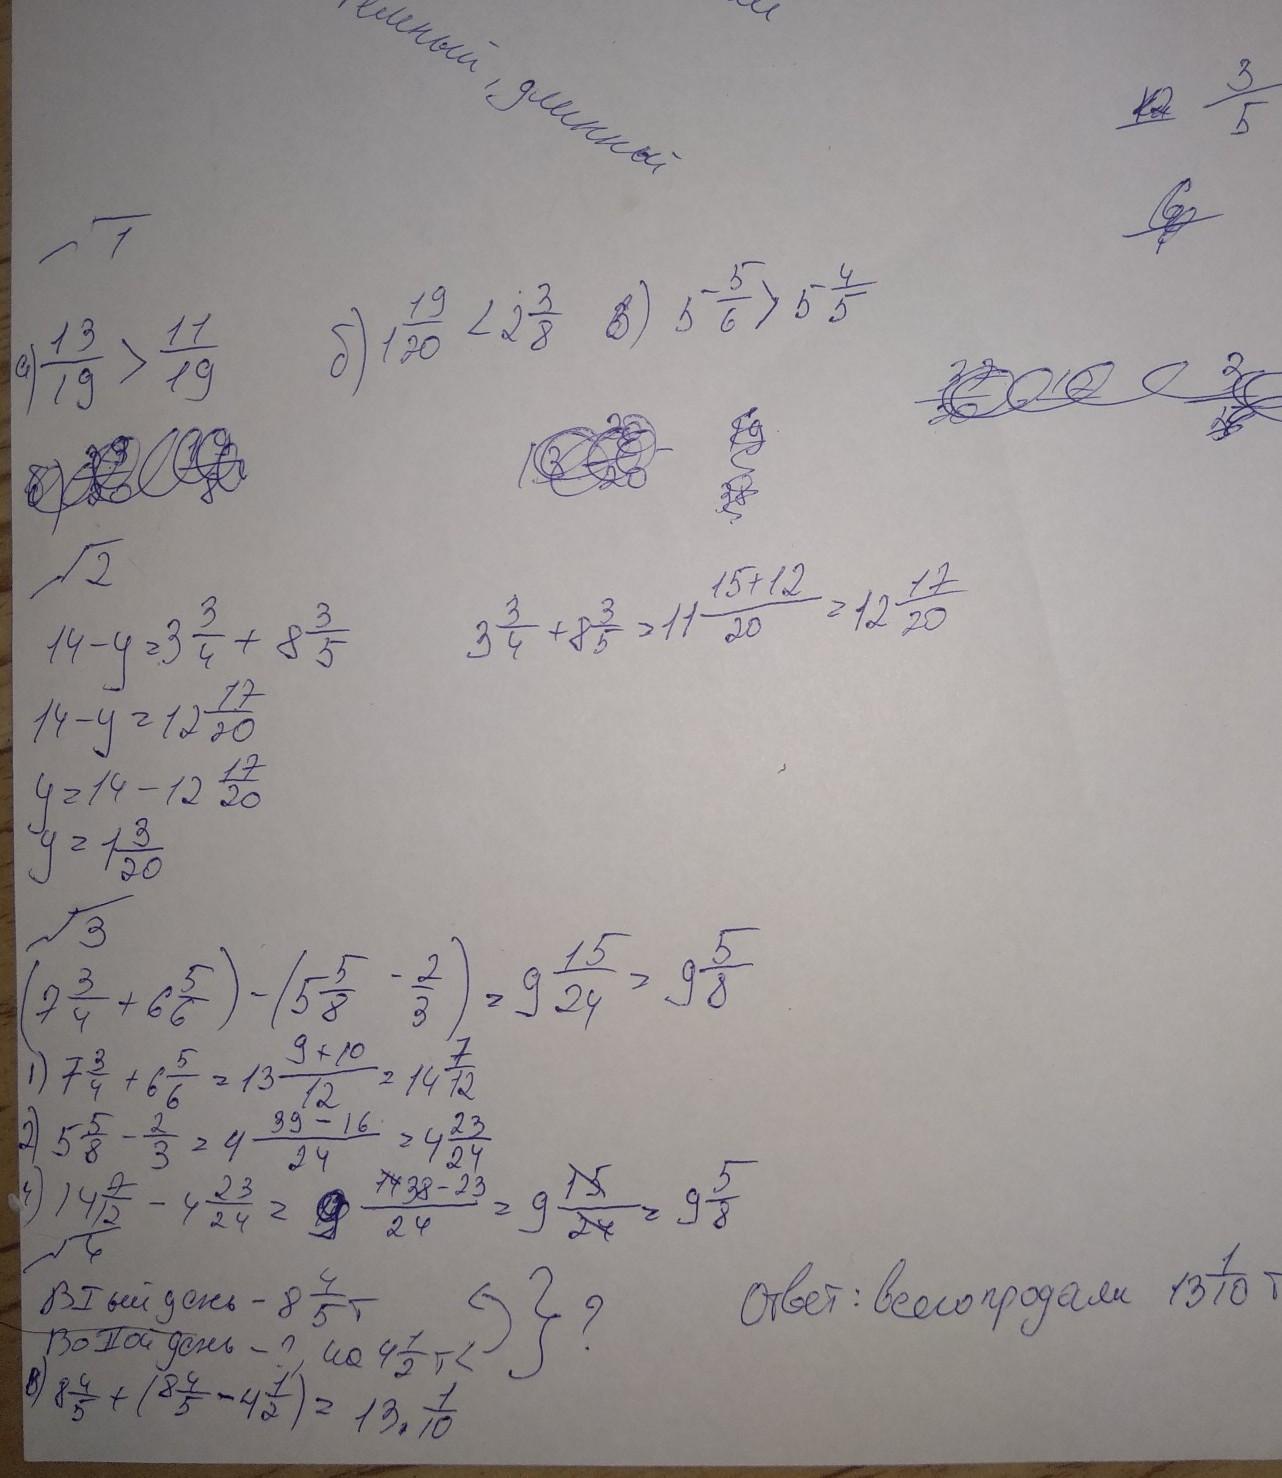 темный, длинный
3/5
√1
а) 13/19 > 11/19 б) 1 19/20 < 2 3/8 в) 5 5/6 > 5 4/5
√2
14-y=3 3/4 + 8 3/5 3 3/4 + 8 3/5 = 11 15+12/20 = 12 17/20
14-y=12 17/20
y=14-12 17/20
y=1 3/20
√3
(7 3/4 + 6 5/6) - (5 5/8 - 2/3) = 9 15/24 = 9 5/8
1) 7 3/4 + 6 5/6 = 13 9+10/12 = 14 7/12
2) 5 5/8 - 2/3 = 4 39-16/24 = 4 23/24
4) 14 7/12 - 4 23/24 = 9 38-23/24 = 9 15/24 = 9 5/8
√4
В I ый день - 8 4/5 т } ? Ответ: всего продали 13 1/10 т
Во II ой день - ?, на 4 1/2 т <
в) 8 4/5 + (8 4/5 - 4 1/2) = 13. 1/10